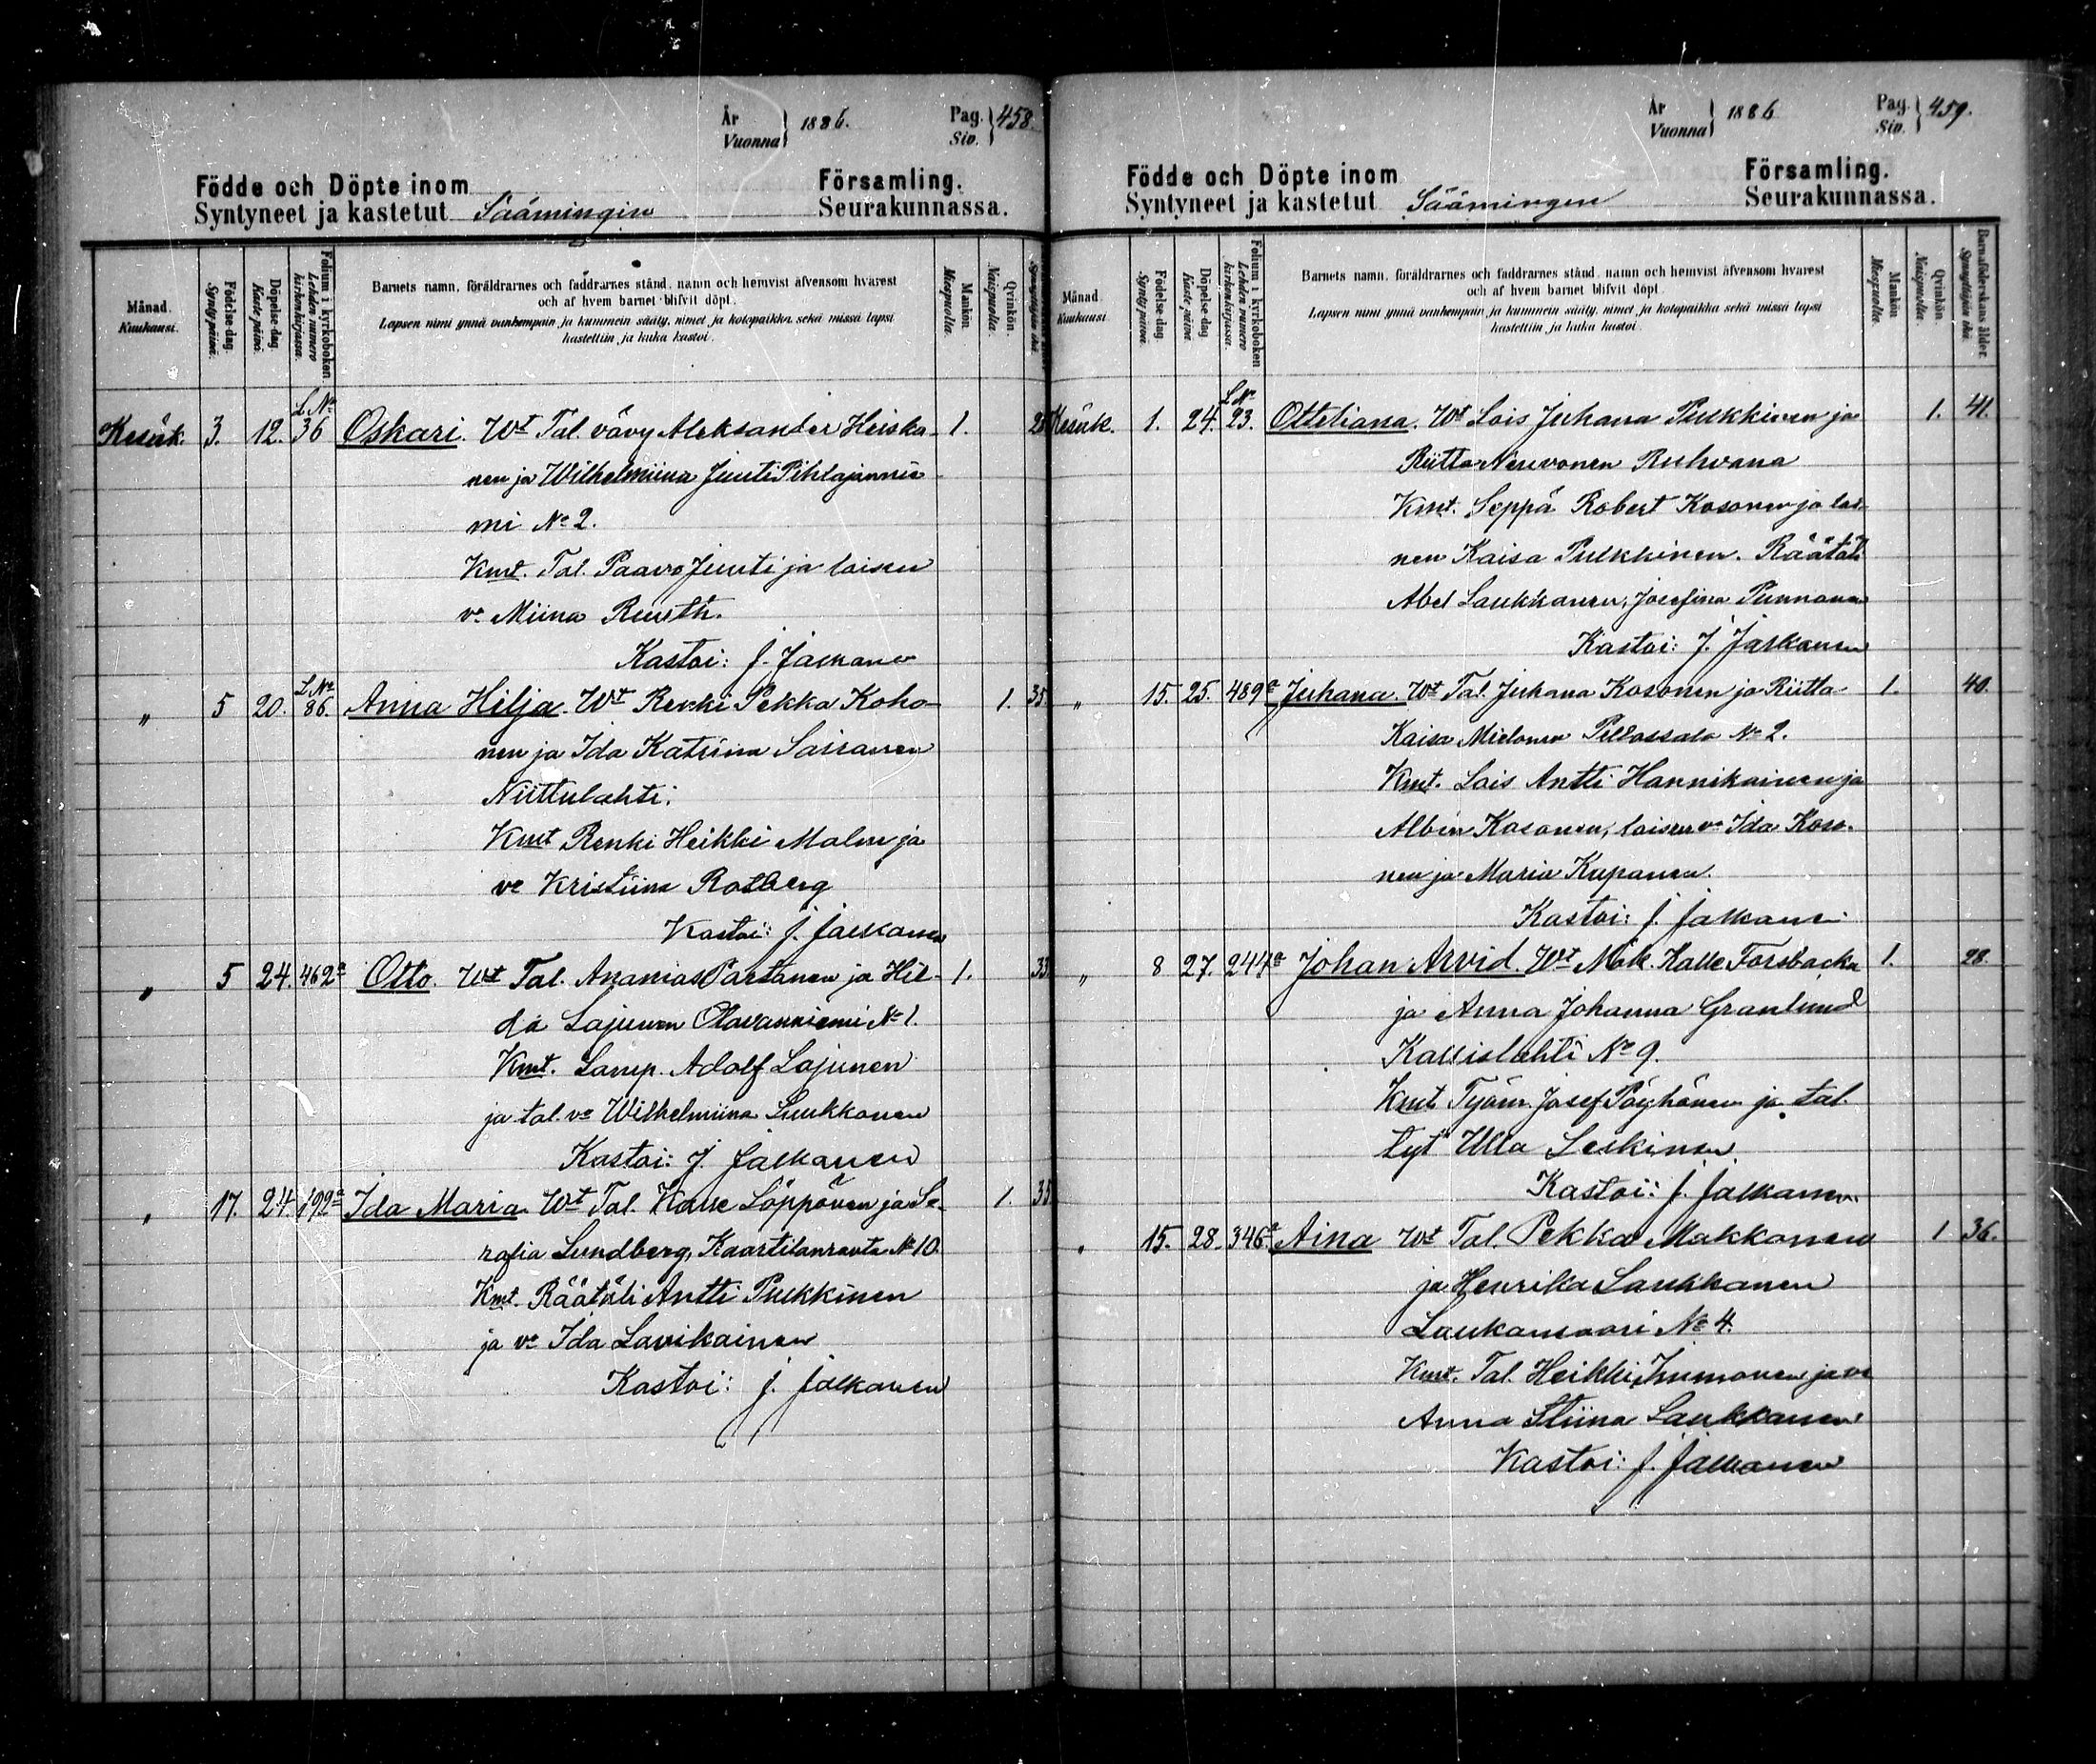 År
Vuonna } 1886.
Pag.
Siv. } 458.
Födde och Döpte inom Församling.
Syntyneet ja kastetut Säämingin Seurakunnassa.
Månad. Kuukausi.
Födelse-dag. Synty päivä.
Döpelse-dag. Kaste-päivä.
Folium i kyrkoboken. Lehden numero kirkonkirjassa.
Barnets namn, föräldrarnes och faddrarnes stånd, namn och hemvist äfvensom hvarest
och af hvem barnet blifvit döpt.
Lapsen nimi ynnä vanhempain ja kummein sääty, nimet ja kotopaikka sekä missä lapsi
kastettiin ja kuka kastoi.
Mankön. Miespuolta.
Qvinkön. Naispuolta.
L. No
Kesäk. 3. 12. 36 Oskari. Wt Tal. vävy Aleksander Heiska- 1. 28
nen ja Wilhelmiina Juuti Pihlajannie
mi No 2.
Kmt. Tal. Paavo Juuti ja loisen
vo Miina Rusth.
Kastoi: J. Jalkanen
L. No
" 5 20. 86. Anna Hilja. Wt Renki Pekka Koho- 1. 35
nen ja Ida Katriina Sairanen
Niittulahti.
Kmt Renki Heikki Malm ja
vo Kristiina Rotberg
Kastoi: J. Jalkanen
" 5 24. 462a Otto. Wt Tal. Ananias Partanen ja Hil- 1. 33
da Lajunen Olavanniemi No 1.
Kmt. Lamp. Adolf Lajunen
ja tal. vo Wilhelmiina Luukkonen
Kastoi: J. Jalkanen
" 17. 24. 192a Ida Maria Wt Tal. Kalle Löppönen ja Se- 1. 35
rafia Lundberg, Kaartilanranta No 10.
Kmt. Räätäli Antti Pulkkinen
ja vo Ida Lavikainen
Kastoi: J. Jalkanen
År
Vuonna } 1886
Pag.
Siv. } 459.
Födde och Döpte inom Församling.
Syntyneet ja kastetut Säämingin Seurakunnassa.
Månad. Kuukausi.
Födelse-dag. Synty päivä.
Döpelse-dag. Kaste-päivä.
Folium i kyrkoboken. Lehden numero kirkonkirjassa.
Barnets namn, föräldrarnes och faddrarnes stånd, namn och hemvist äfvensom hvarest
och af hvem barnet blifvit döpt.
Lapsen nimi ynnä vanhempain ja kummein sääty, nimet ja kotopaikka sekä missä lapsi
kastettiin ja kuka kastoi.
Mankön. Miespuolta.
Qvinkön. Naispuolta.
Barnaföderskans ålder. Synnyttäjän ikä.
L No
Kesäk. 1. 24. 23. Otteliana. Wt Lois Juhana Pulkkinen ja 1. 41.
Riitta Neuvonen Ruhvana
Kmt. Seppä Robert Kosonen ja loi-
nen Kaisa Pulkkinen. Räätäli
Abel Laukkanen, Josefina Punnonen
Kastoi: J. Jalkanen
" 15. 25. 489a Juhana. Wt Tal. Juhana Kosonen ja Riitta 1. 40.
Kaisa Mielonen Pellossalo No 2.
Kmt. Lois Antti Hannikainen ja
Albin Kosonen, loisen vo Ida Koso-
nen ja Maria Kupanen.
Kastoi: J. Jalkanen
" 8 27. 244a Johan Arvid. Wt Mäk. Kalle Forsbacka 1. 28.
ja Anna Johanna Granlund
Kallislahti No 9.
Kmt Työm. Josef Pöyhönen ja tal.
tyt Ulla Leskinen
Kastoi: J. Jalkanen
" 15. 28. 346a Aina Wt Tal. Pekka Makkonen 1 36.
ja Henrika Laukkanen
Laukansaari No 4.
Kmt. Tal. Heikki Immonen ja vo
Anna Stiina Laukkanen
Kastoi: J. Jalkanen